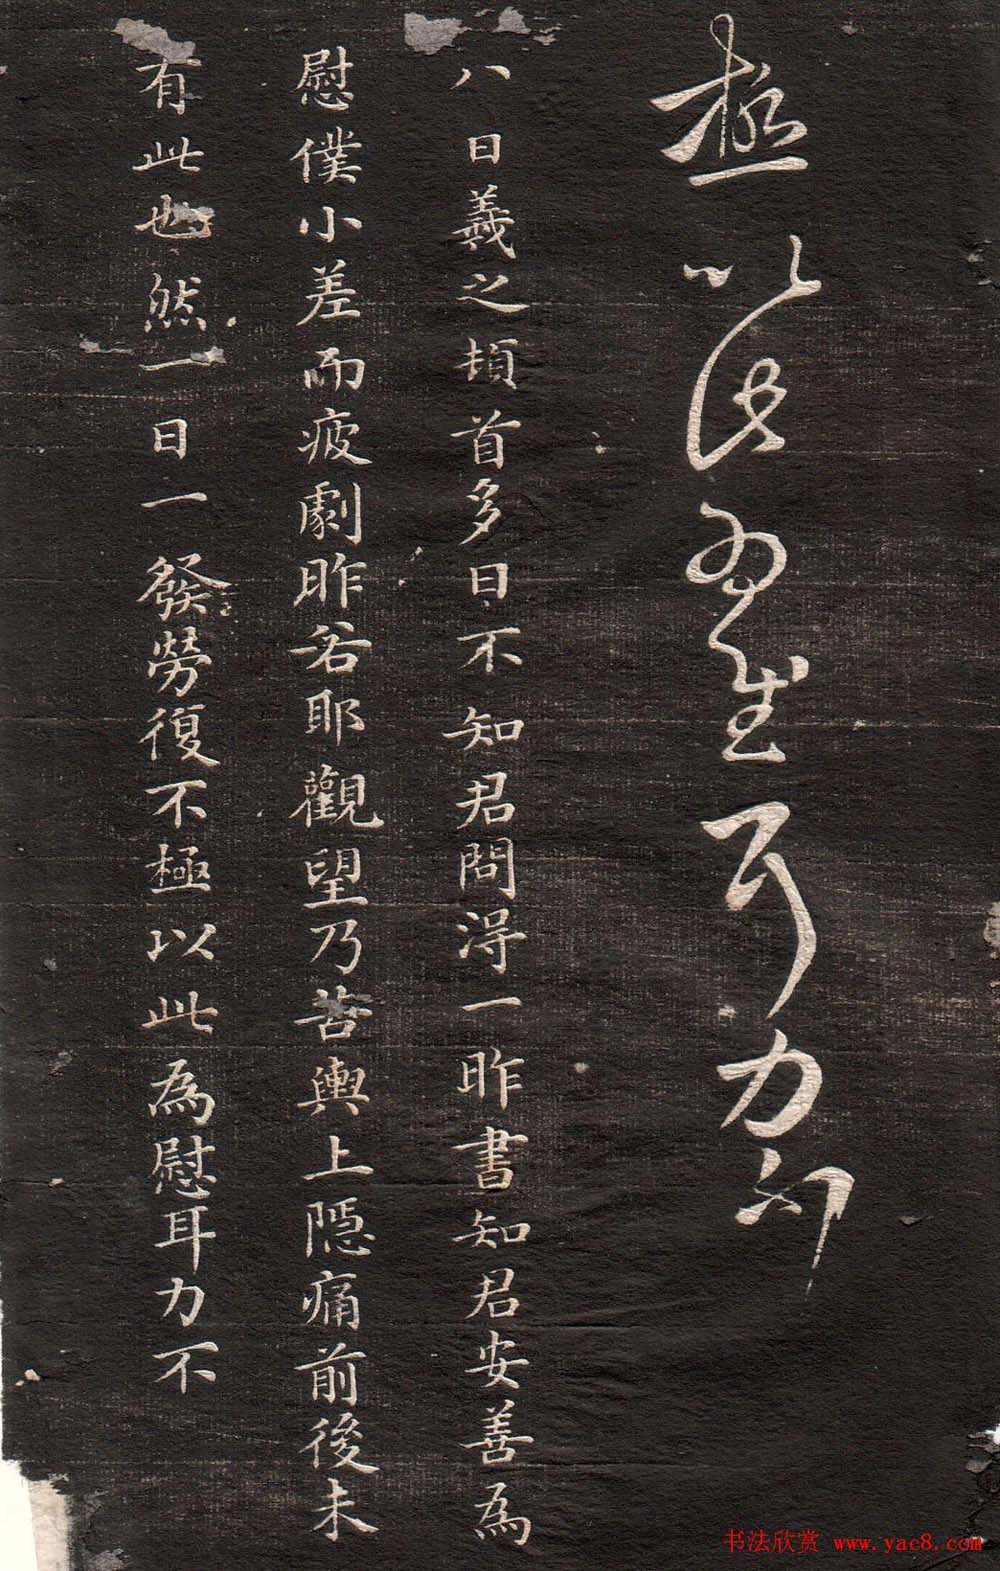 極以此為慰耳力不
八日羲之頓首多日不知君問得一昨書知君安善為
慰僕小差而疲劇昨若耶觀望乃苦輿上隱痛前後未
有此也然一日一發勞復不極以此為慰耳力不
书法欣赏 www.yac8.com